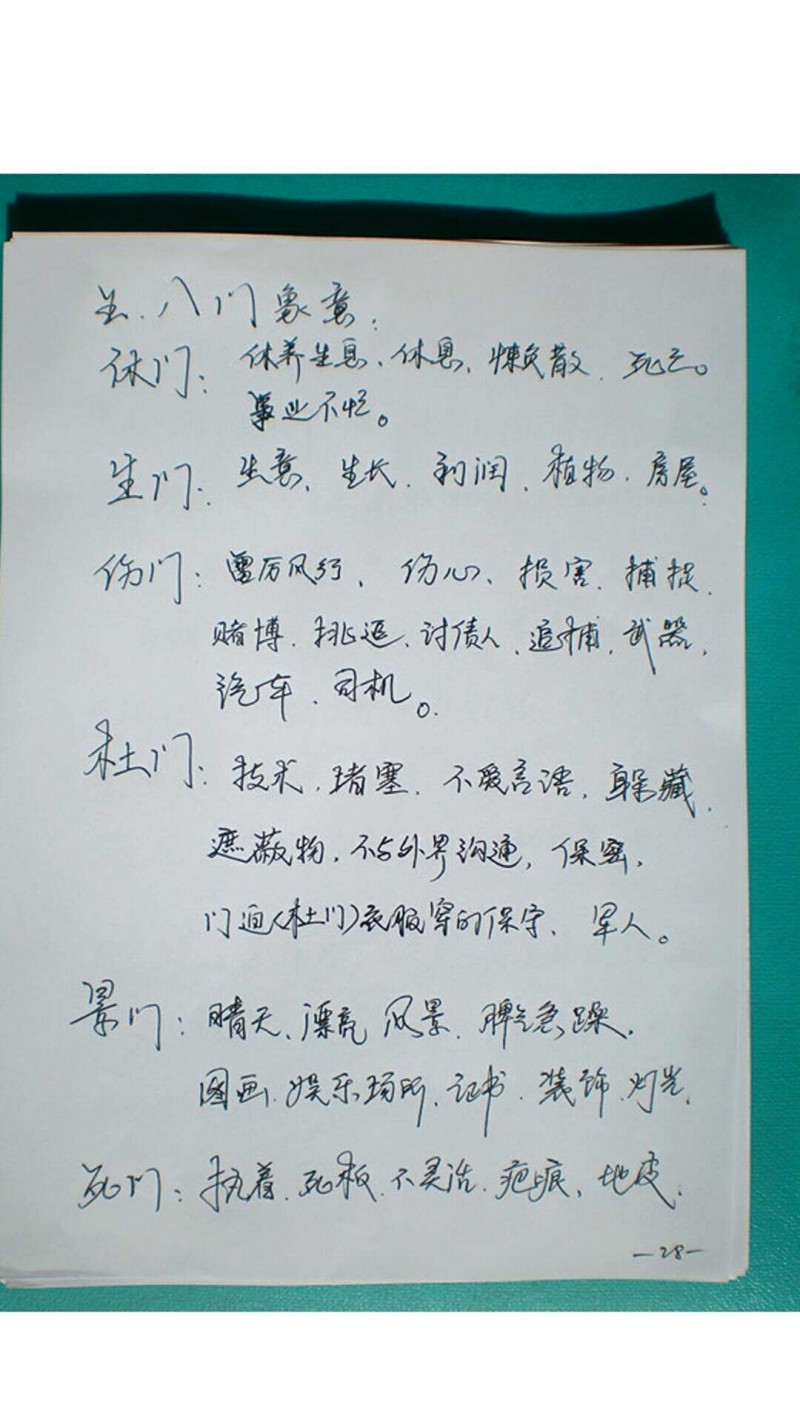 八门象意：
休门：休养生息、休息、懒散、死亡。
事业不忙。
生门：生意、生长、利润、植物、房屋。
伤门：雷厉风行、伤心、损害、捕捉、
赌博、挑逗、讨债人、追捕、武器、
汽车、司机。
杜门：技术、堵塞、不爱言语、躲藏、
遮蔽物、不与外界沟通，保密，
门迫（杜门）衣服穿的保守、军人。
景门：晴天、漂亮、风景、脾气急躁、
图画、娱乐场所、证书、装饰、灯光、
死门：执着、死板、不灵活、疤痕、地皮、
—28—